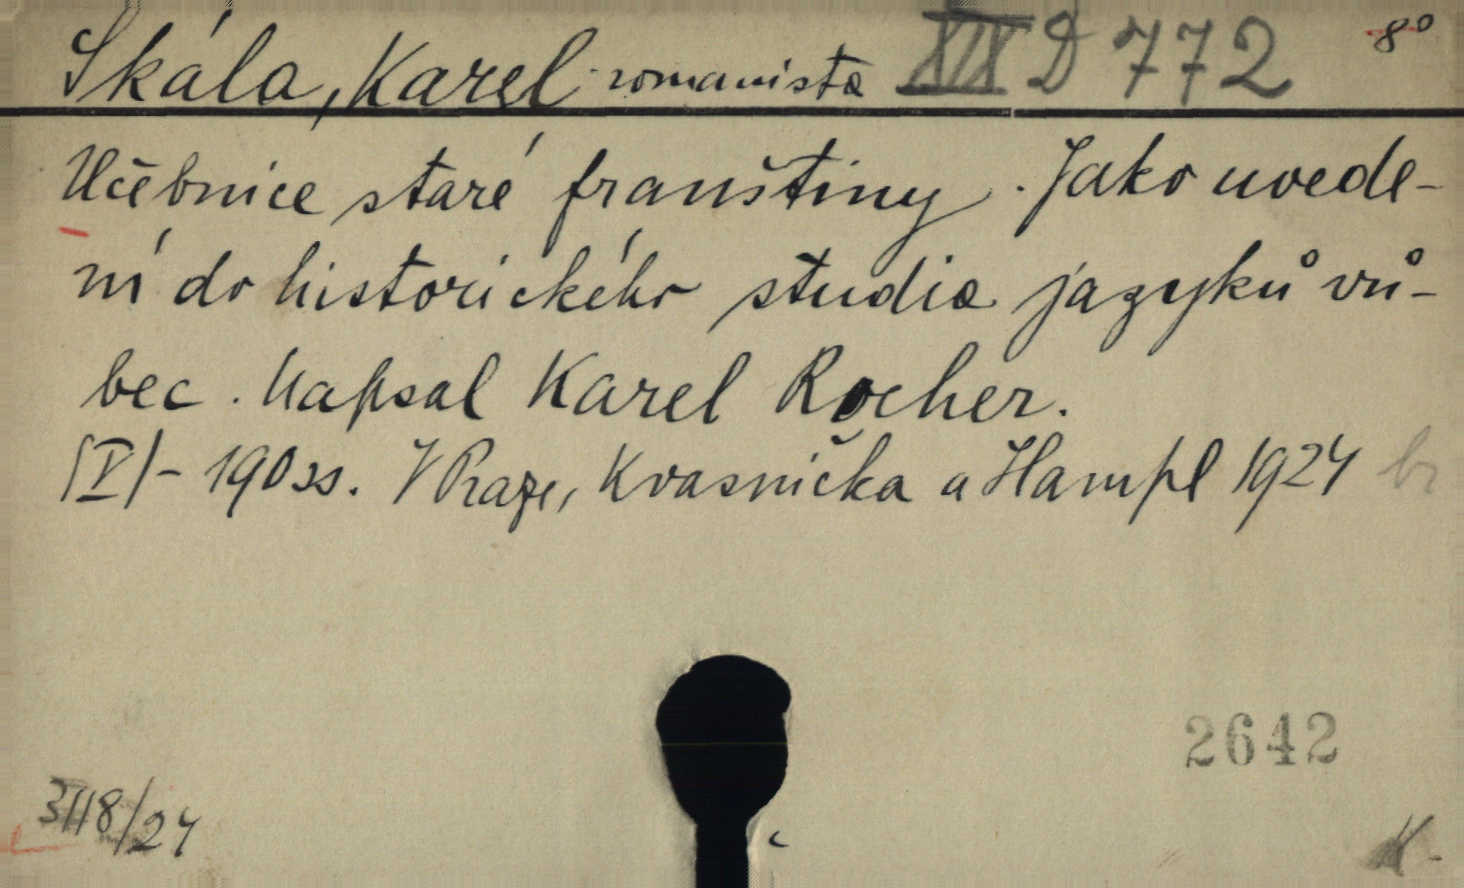 Skála, Karel romanista XIX D 772 8°
Učebnice staré franštiny. Jako uvede-
ní do historického studia jazyků vů-
bec. Napsal Karel Rocher.
(V)- 190 ss. V Praze, Kvasnička a Hampl 1924 br
2642
3118/24